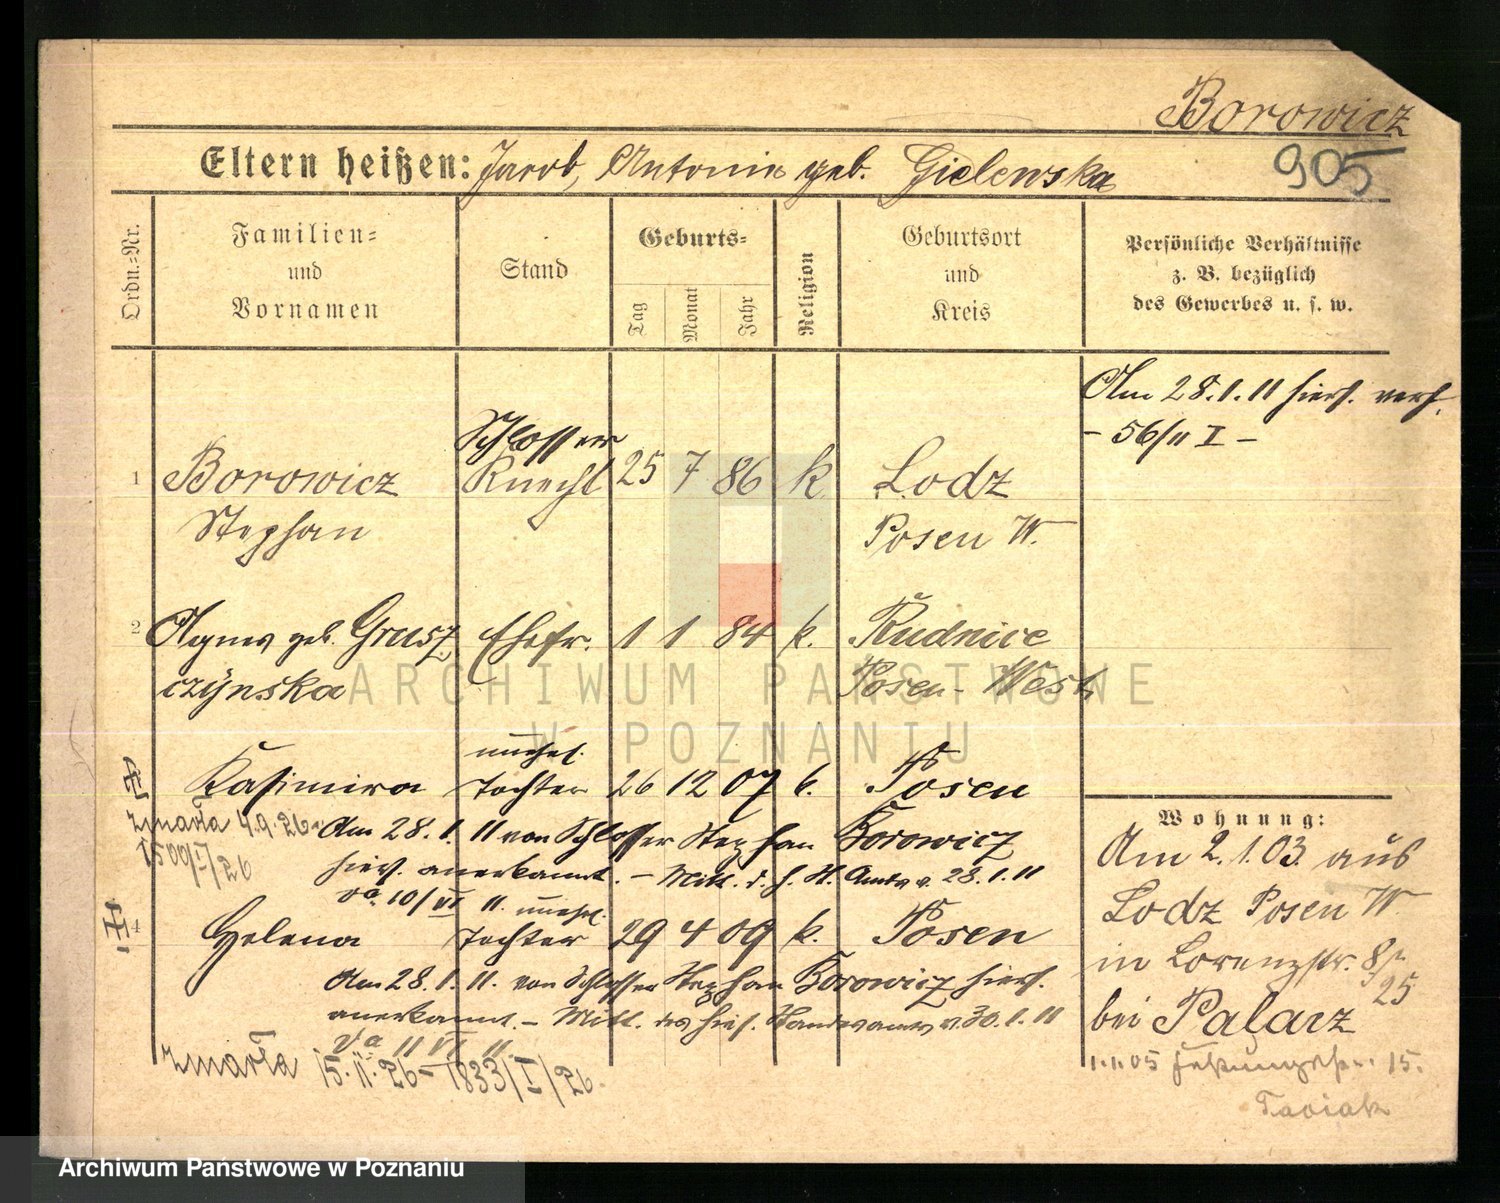 Borowicz
905
Eltern heißen: Jacob, Antonie geb. Gielewska
Ordn.-Nr.
Familien-
und
Vornamen
Stand
Geburts-
Tag
Monat
Jahr
Religion
Geburtsort
und
Kreis
Persönliche Verhältnisse
z. B. bezüglich
des Gewerbes u. s. w.
Am 28.1.11 hies. verh.
- 56/11 I -
Schlosser
1 Borowicz Knecht 25 7 86 k Lodz
Stephan Posen W.
2 Agnes geb. Grusz Ehefr. 1 1 84 k. Rudnice
czÿnska Posen-West
unehel.
Kasimira Tochter 26 12 07 k. Posen
zmarła 4.9.26
1500/I/26
Am 28.1.11 von Schlosser Stephan Borowicz
hies. anerkannt. - Mitt. d. h. St. Amts v. 28.1.11
Va 10/VI 11. unehel.
4 Helena Tochter 29 4 09 k. Posen
Am 28.1.11. von Schlosser Stephan Borowicz hies.
anerkannt. - Mitt. des hies. Standesamts v. 30.1.11
Va 11 VI 11
zmarła 15.II.26 - 1833/I/26.
Wohnung:
Am 2.1.03 aus
Lodz Posen W
in Lorenzstr. 8
25
bei Palacz
1.11.05 15.
ARCHIWUM PAŃSTWOWE
W POZNANIU
Archiwum Państwowe w Poznaniu